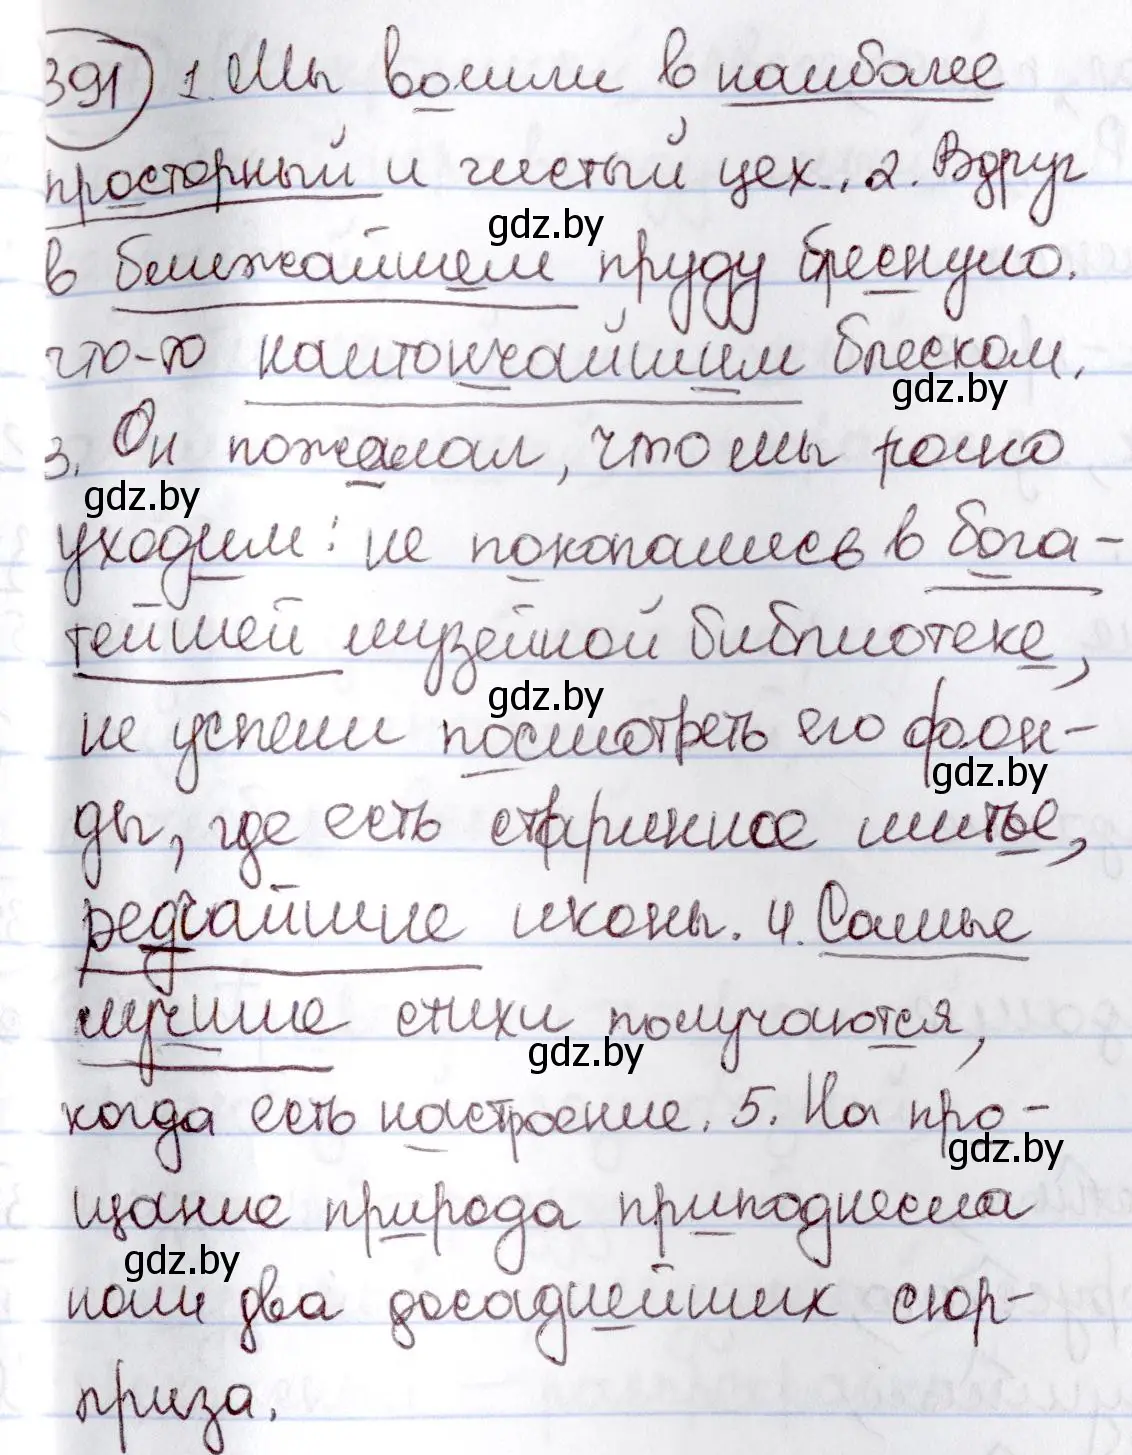 391 1. Мы вошли в наиболее
просторный и чистый цех. 2. Вдруг
gdz.by
в ближайшем пруду блеснуло
что-то наитончайшим блеском.
gdz.by
3. Он пожалел, что мы рано
gdz.by
уходим: не покопались в бога-
тейшей музейной библиотеке,
gdz.by
не успели посмотреть его фон-
gdz.by
ды, где есть старинное шитье,
редчайшие иконы. 4. Самые
лучшие стихи получаются,
gdz.by
когда есть настроение. 5. На про-
gdz.by
щание природа приподнесла
gdz.by
нам два досаднейших сюр-
приза.